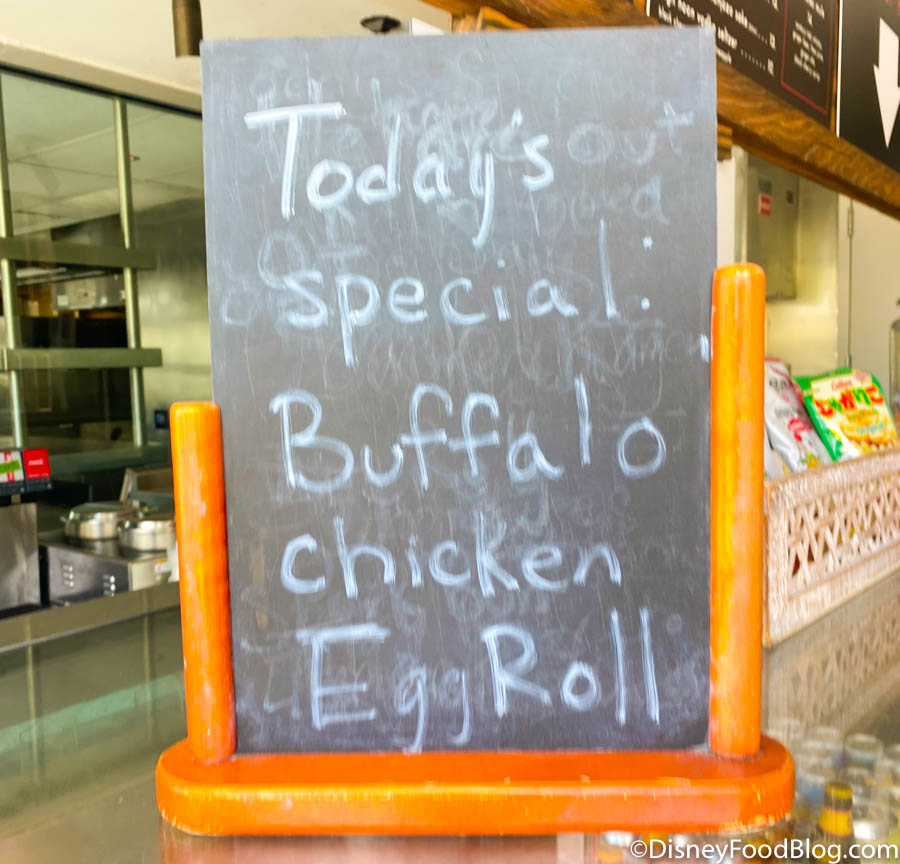 Today's
special:
Buffalo
chicken
Egg Roll
©DisneyFoodBlog.com